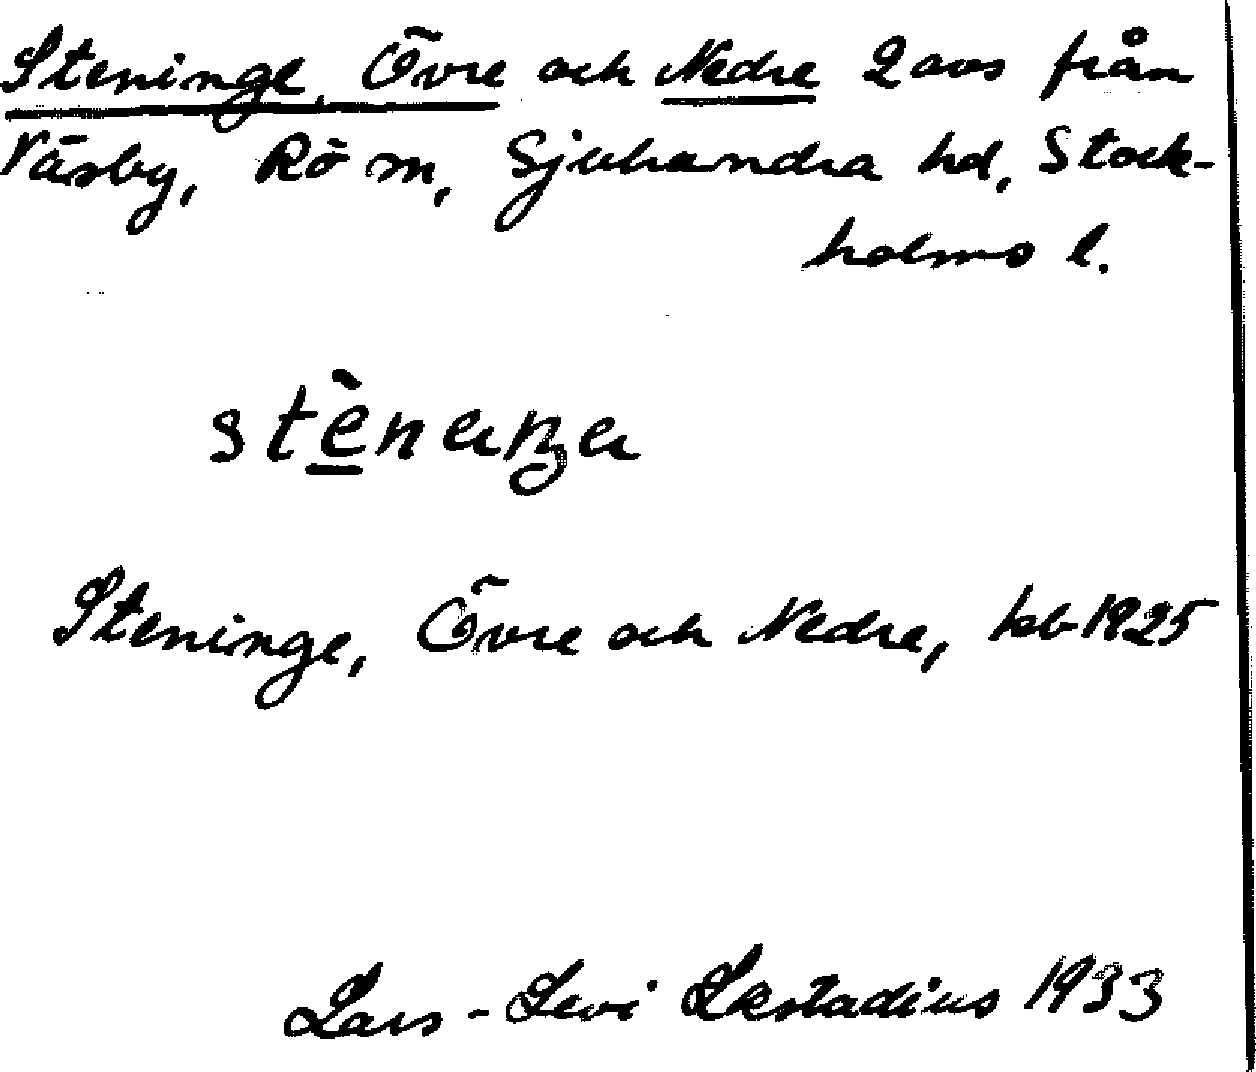 Steninge, Övre och Nedre 2 avs från
Väsby, Rö sn, Sjuhundra hd, Stock-
holms l.
stènaŋa
Steninge, Övre och Nedre, jeb 1925
Lars-Levi Læstadius 1933